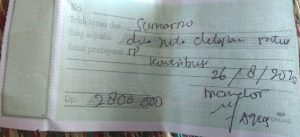 No.
Telah terima dari Sumarno
Uang sejumlah dua juta delapan ratus
rp
Untuk pembayaran Kontribusi
26/8/2020
Rp. 2800 000